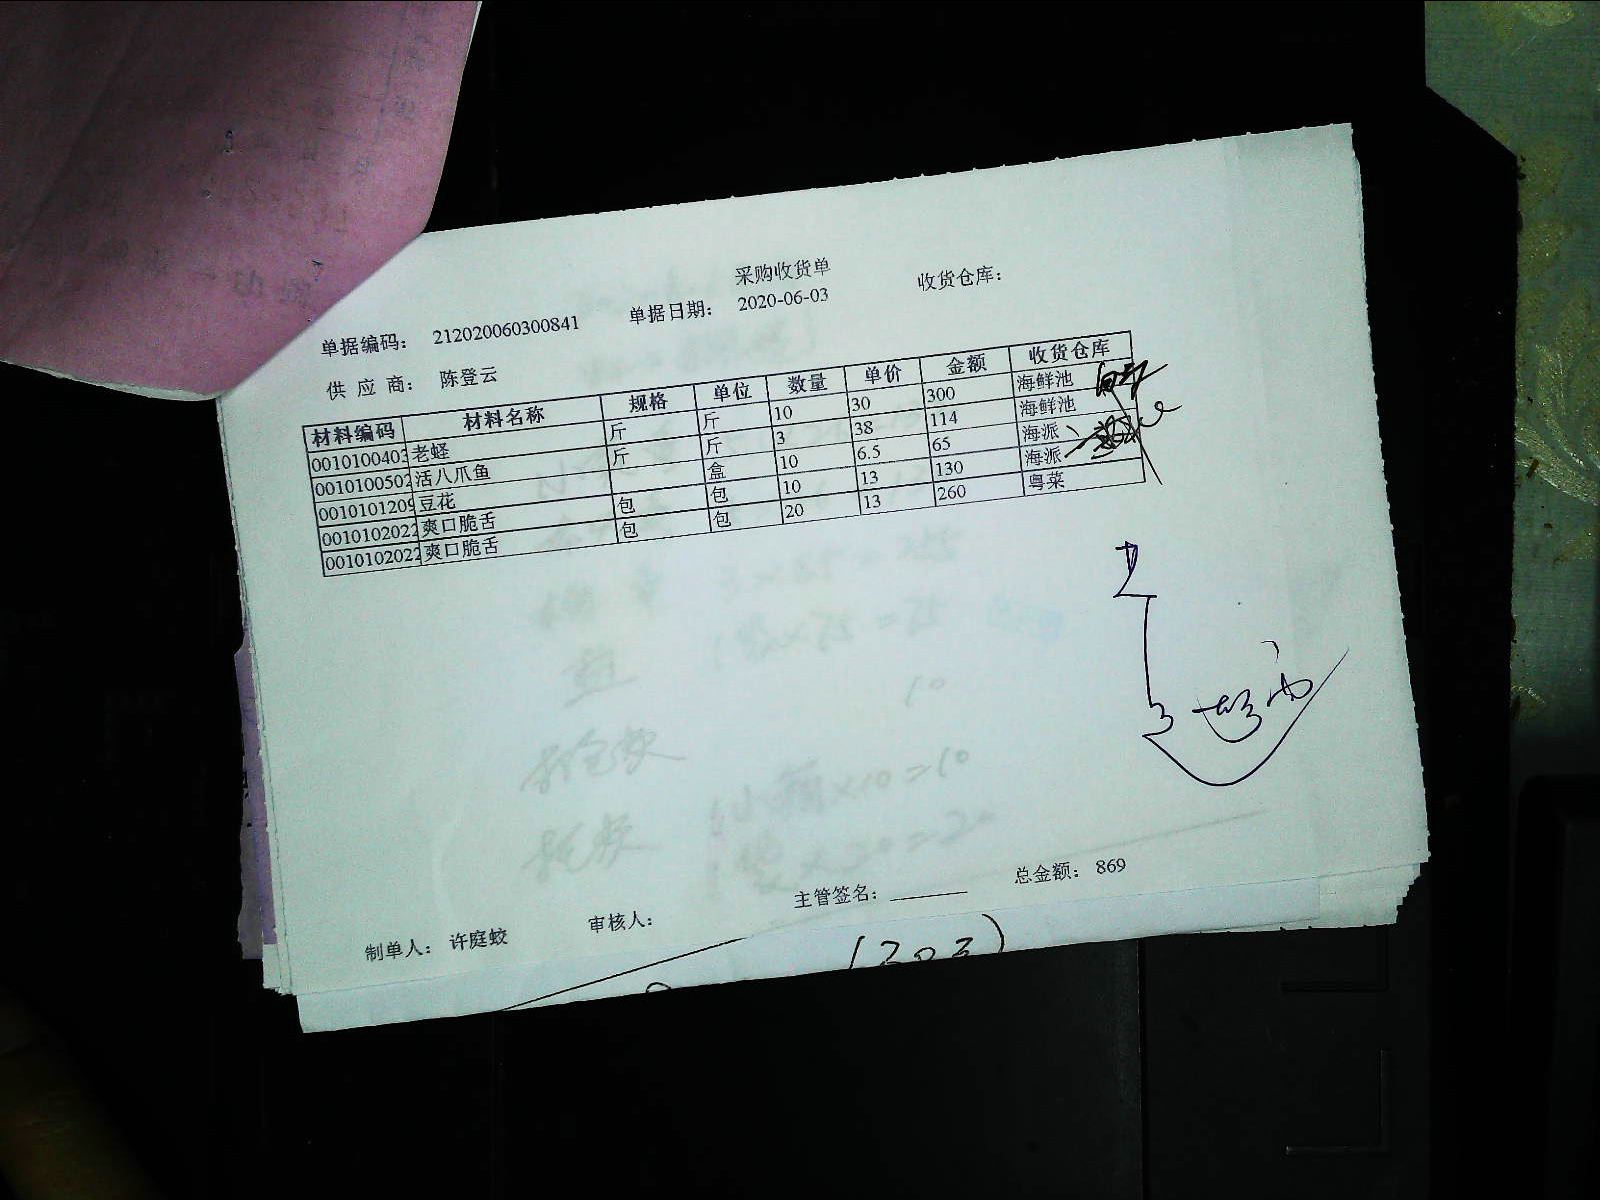 采购收货单
单据编码： 212020060300841 单据日期： 2020-06-03 收货仓库：
供 应 商： 陈登云
材料编码 材料名称 规格 单位 数量 单价 金额 收货仓库
0010100403 老蛏 斤 斤 10 30 300 海鲜池
0010100502 活八爪鱼 斤 斤 3 38 114 海鲜池
0010101209 豆花 盒 10 6.5 65 海派
0010102022 爽口脆舌 包 包 10 13 130 海派
0010102022 爽口脆舌 包 包 20 13 260 粤菜
制单人： 许庭蛟 审核人： 主管签名： 总金额： 869